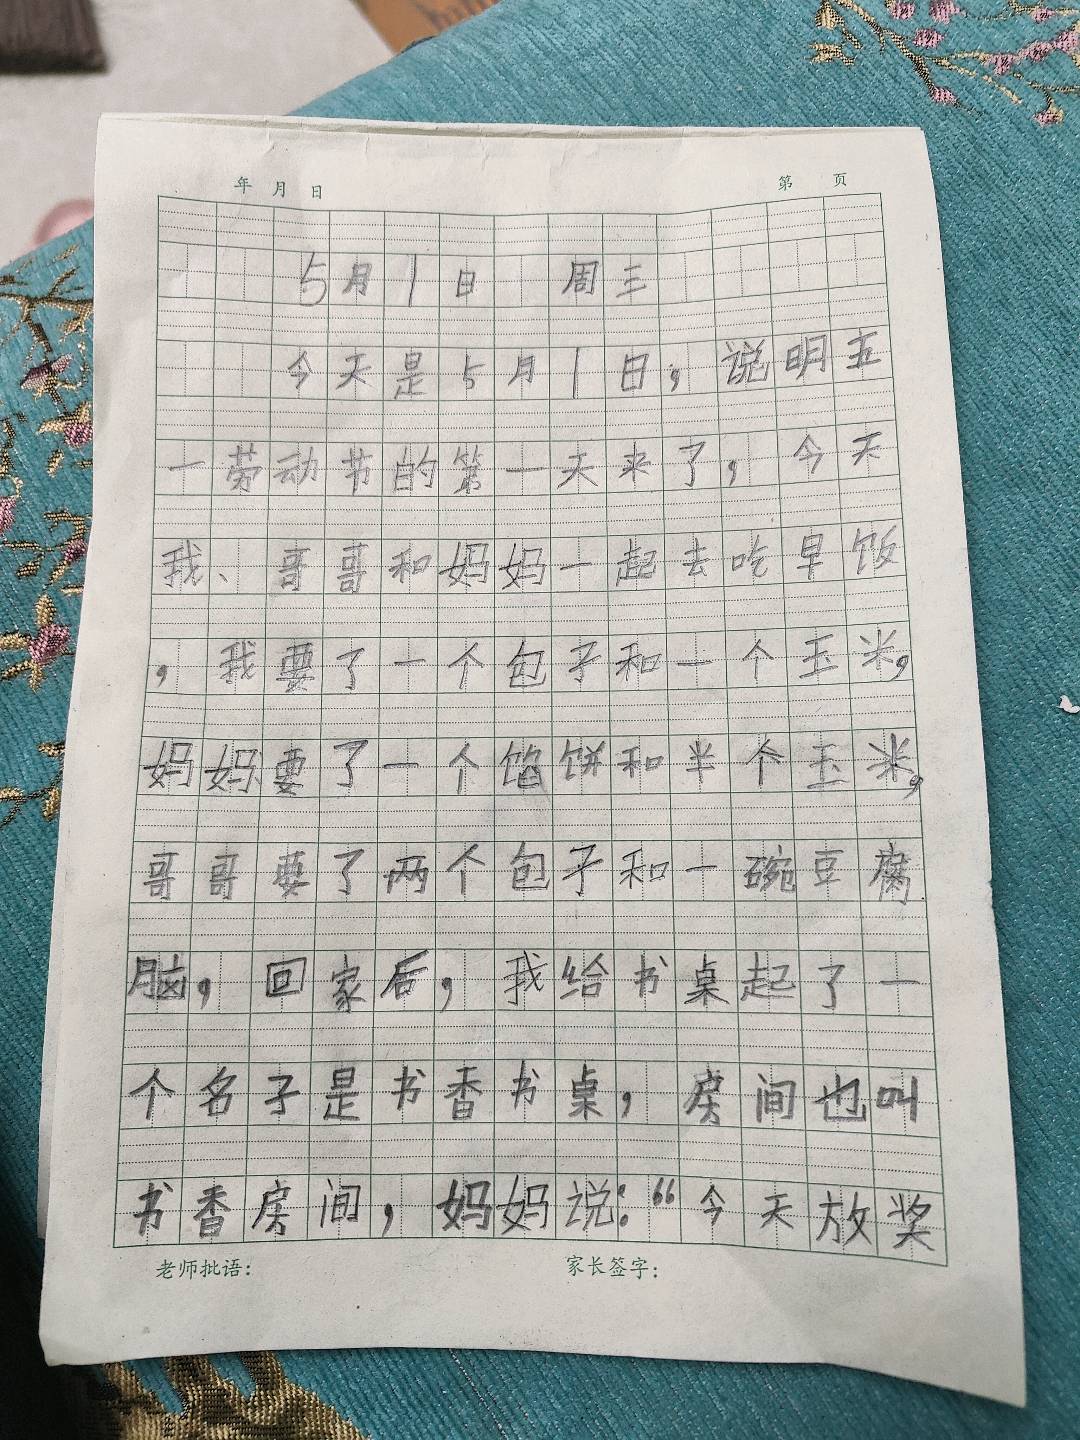 年 月 日 第 页
5月1日 周三
今天是5月1日，说明五
一劳动节的第一天来了，今天
我、哥哥和妈妈一起去吃早饭
，我要了一个包子和一个玉米，
妈妈要了一个馅饼和半个玉米，
哥哥要了两个包子和一碗豆腐
脑，回家后，我给书桌起了一
个名子是书香书桌，房间也叫
书香房间，妈妈说：“今天放奖
老师批语： 家长签字：